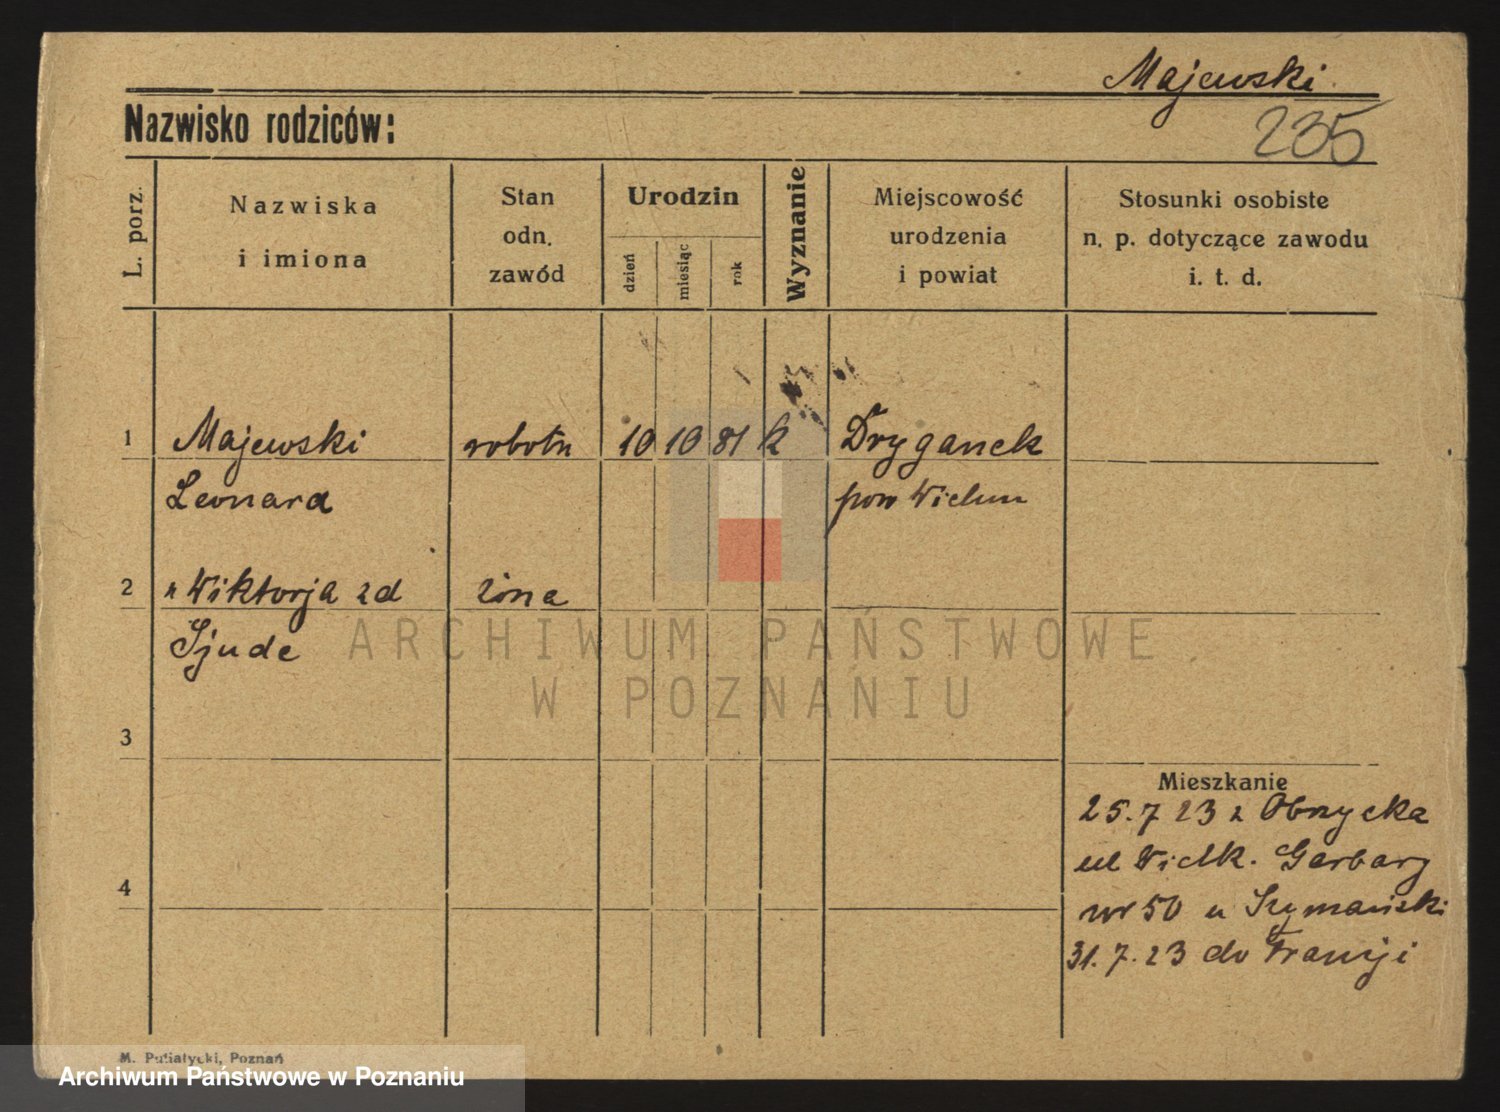 Majewski
235
Nazwisko rodziców:
L. porz.
Nazwiska
i imiona
Stan
odn.
zawód
Urodzin
dzień
miesiąc
rok
Wyznanie
Miejscowość
urodzenia
i powiat
Stosunki osobiste
n. p. dotyczące zawodu
i. t. d.
1 Majewski robotn 10 10 81 k Dryganek
Leonard pow Wielun
2 " Wiktorja zd żona
Sjude
ARCHIWUM PAŃSTWOWE
W POZNANIU
3
Mieszkanie
25.7 23 z Obrzycka
ul Wielk. Garbary
4
nr 50 u Szymański
31.7.23 do Francji
M. Putiatycki, Poznań
Archiwum Państwowe w Poznaniu